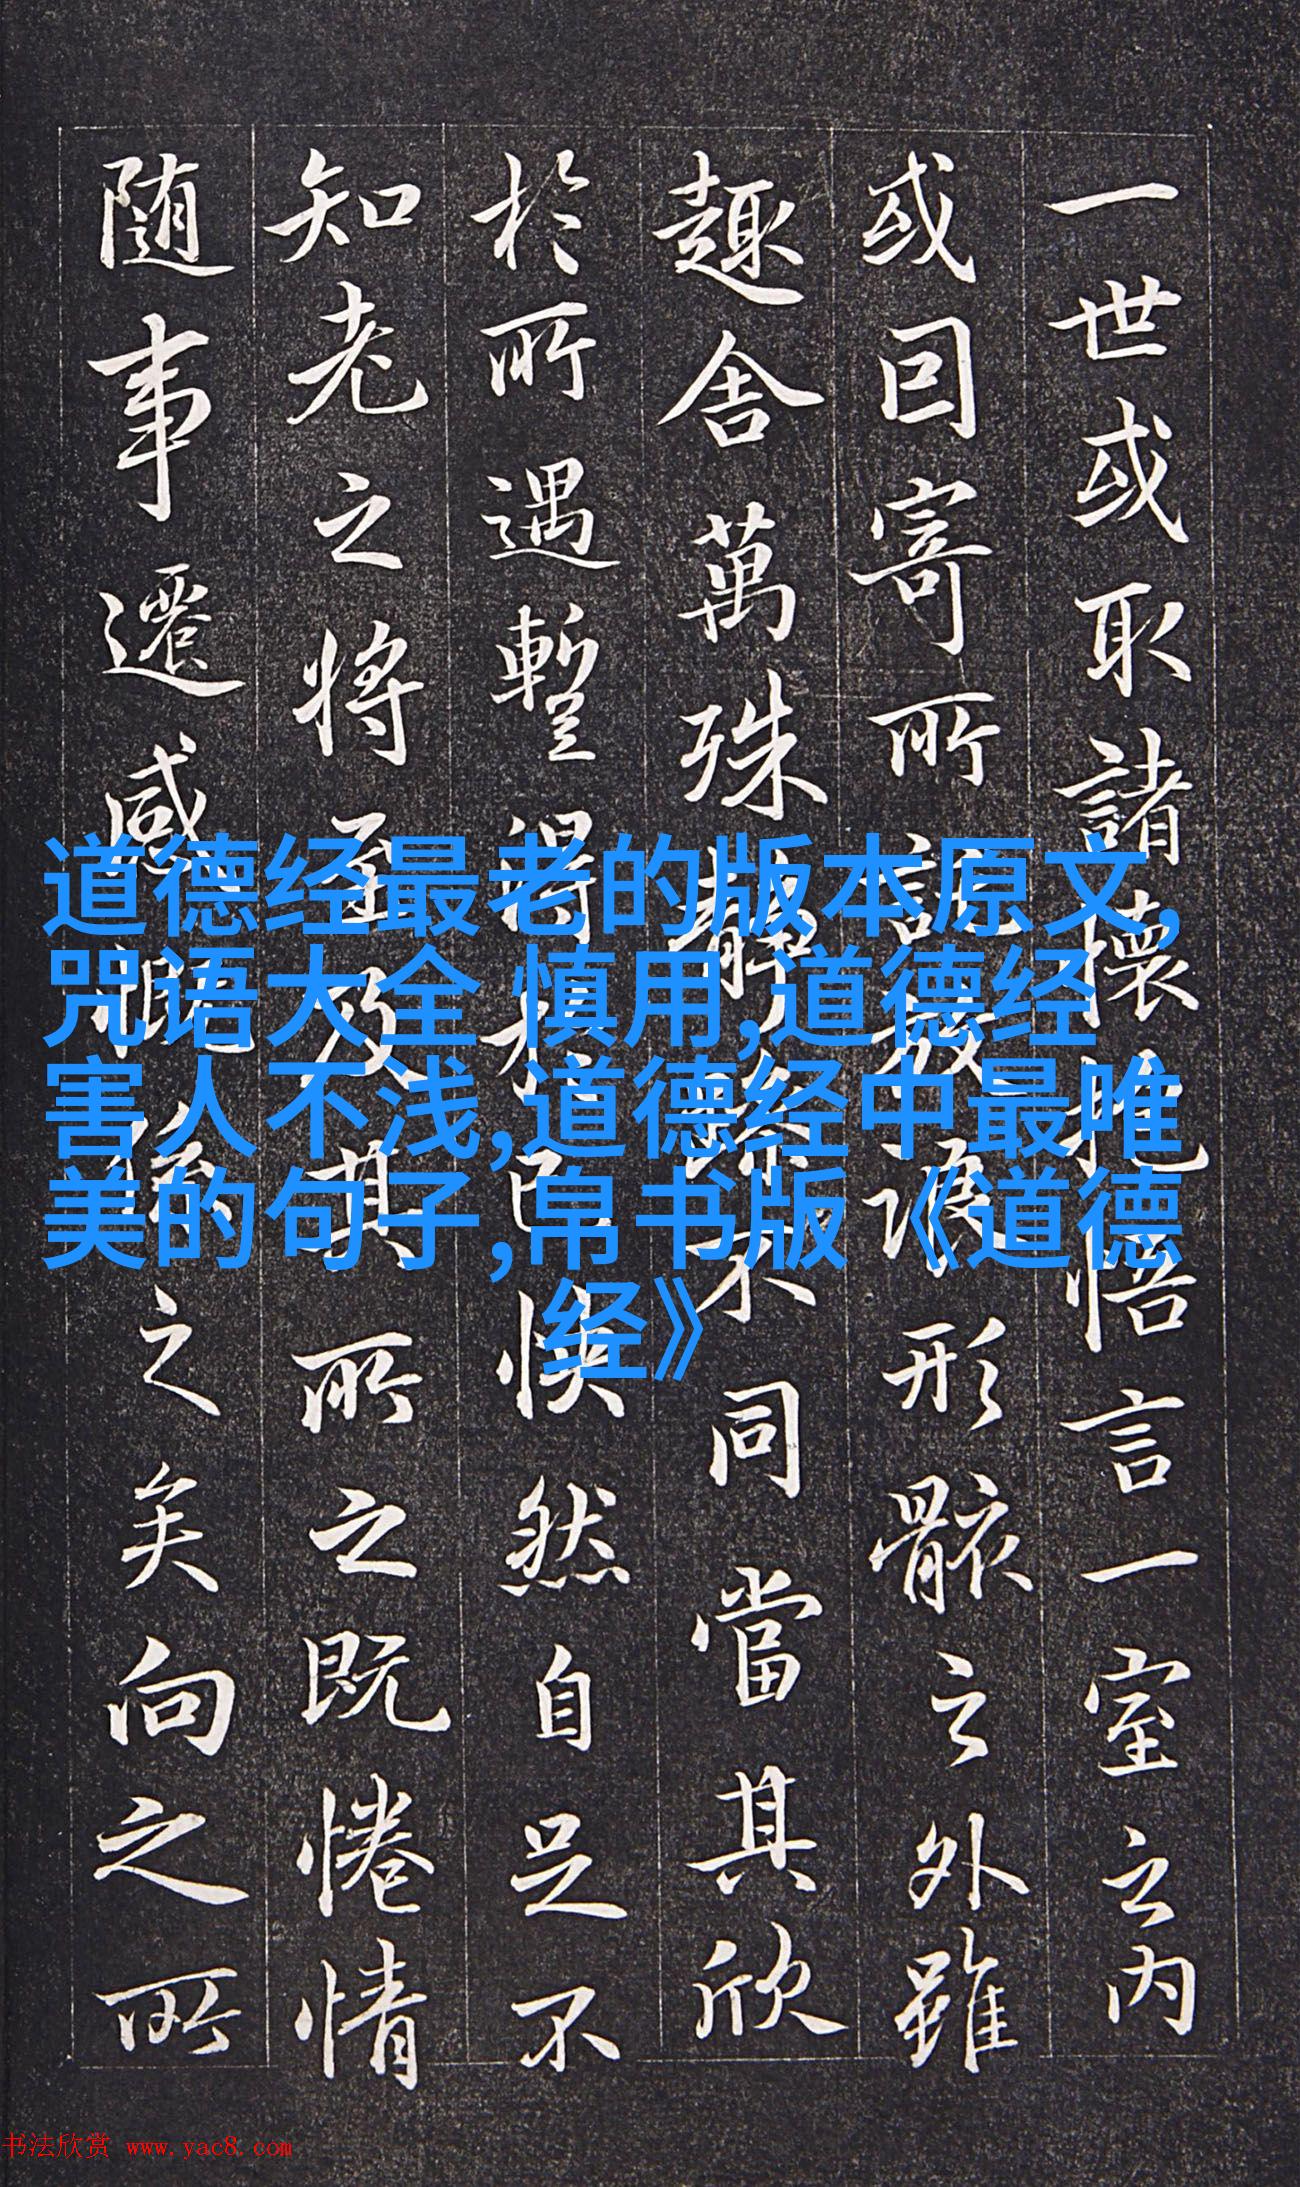 一世或取諸懷抱悟言一室之内
或因寄所託放浪形骸之外雖
趣舍萬殊靜躁不同當其欣
於所遇暫得於己怏然自足不
知老之將至及其所之既惓情
随事遷感慨係之矣向之所
道德经最老的版本原文,
咒语大全 慎用,道德经
害人不浅,道德经中最唯
美的句子,帛书版《道德
经》
书法欣赏 www.yac8.com